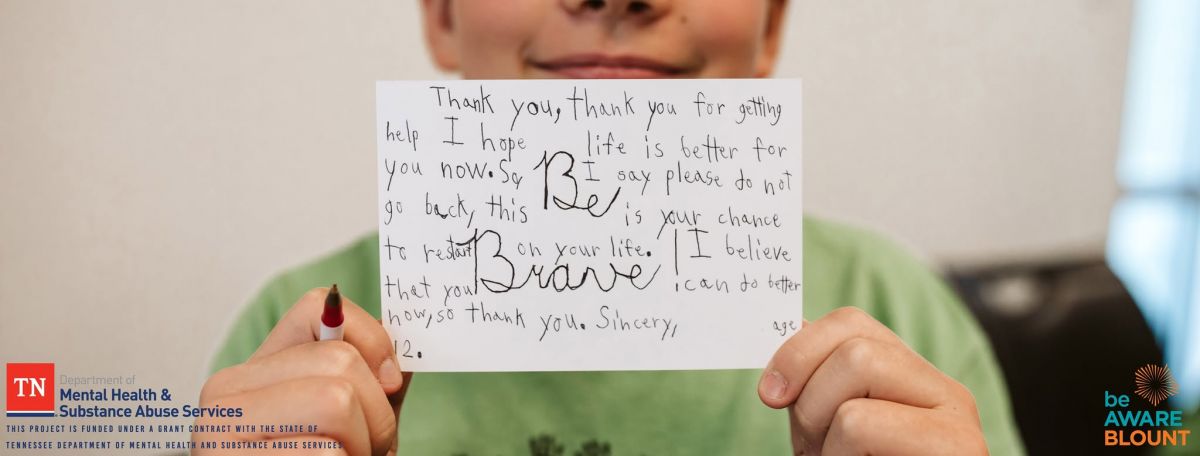 Thank you, thank you for getting
help I hope life is better for
you now. So I say please do not
Be
go back, this is your chance
to restart on your life. I believe
Brave!
that you can do better
now, so thank you. Sincery,
age
12.
TN
Department of
Mental Health &
Substance Abuse Services
THIS PROJECT IS FUNDED UNDER A GRANT CONTRACT WITH THE STATE OF
TENNESSEE DEPARTMENT OF MENTAL HEALTH AND SUBSTANCE ABUSE SERVICES
be
AWARE
BLOUNT